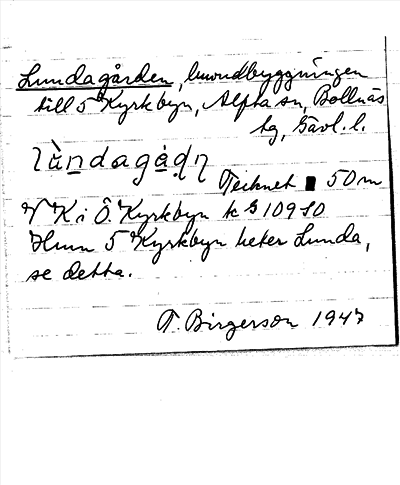 Lundagården, huvudbyggningen
till 5 Kyrkbyn, Alfta sn, Bollnäs
tg, Gävl. l.
lùndagåḍṇ
Tecknet ■ 50 m
V K i Ö. Kyrkbyn k 10980
Hmn 5 Kyrkbyn heter Lunda,
se detta.
T. Birgerson 1947